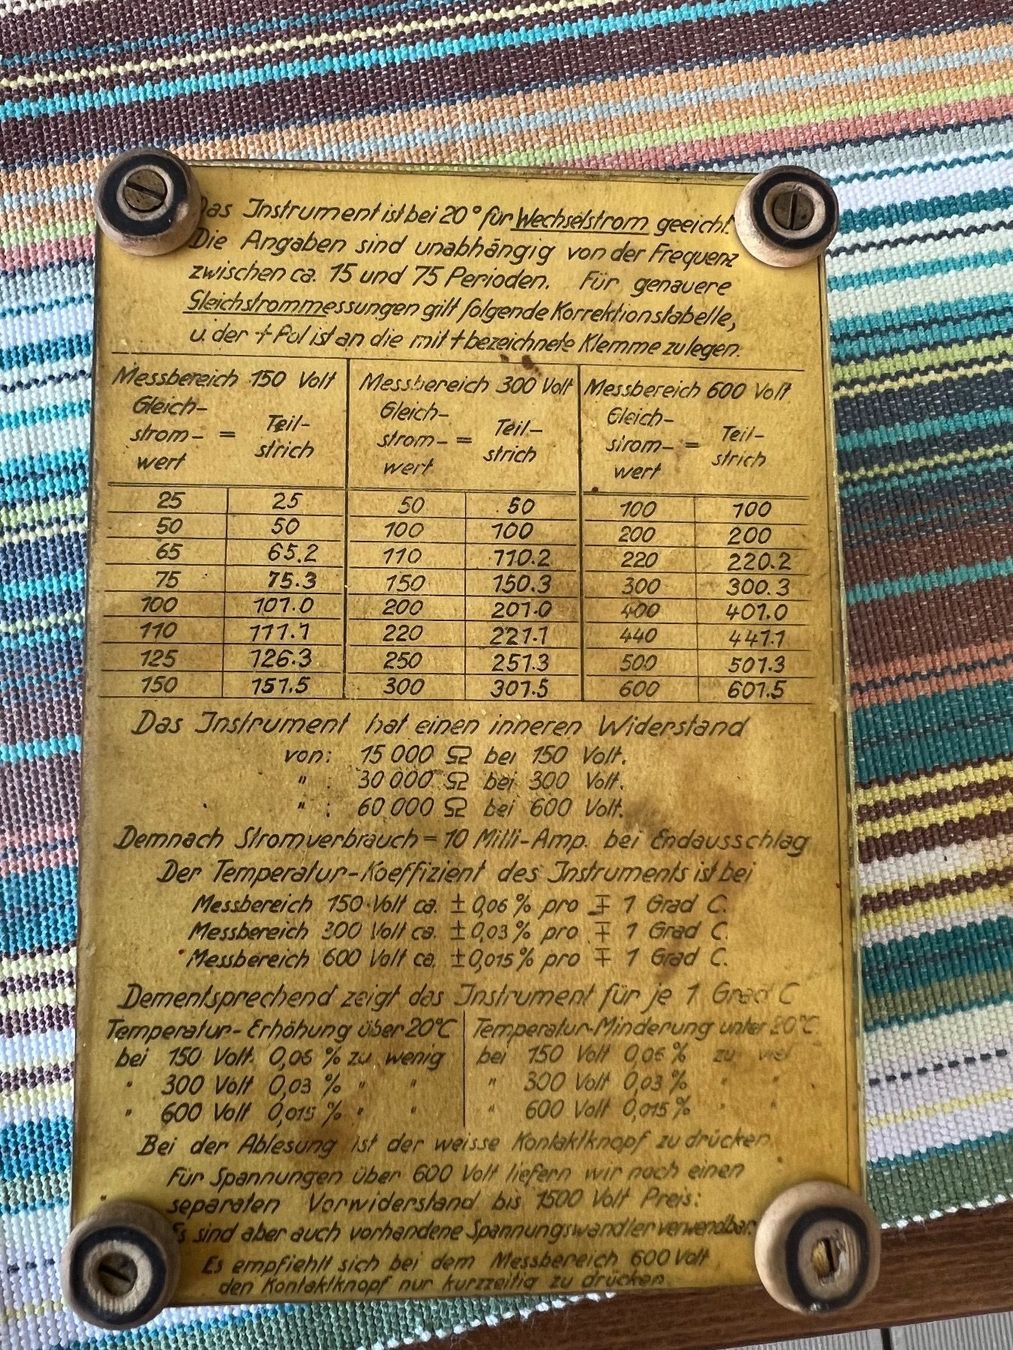 Das Instrument ist bei 20° für Wechselstrom geeicht.
Die Angaben sind unabhängig von der Frequenz
zwischen ca. 15 und 75 Perioden. Für genauere
Gleichstrommessungen gilt folgende Korrektionstabelle,
u. der + Pol ist an die mit + bezeichnete Klemme zu legen.
Messbereich 150 Volt Messbereich 300 Volt Messbereich 600 Volt
Gleich- Gleich- Gleich-
strom- = Teil- strom- = Teil- strom- = Teil-
wert strich wert strich wert strich
25 25 50 50 100 100
50 50 100 100 200 200
65 65.2 110 110.2 220 220.2
75 75.3 150 150.3 300 300.3
100 101.0 200 201.0 400 401.0
110 111.1 220 221.1 440 441.1
125 126.3 250 251.3 500 501.3
150 151.5 300 301.5 600 601.5
Das Instrument hat einen inneren Widerstand
von: 15 000 Ω bei 150 Volt.
" : 30 000 Ω bei 300 Volt.
" : 60 000 Ω bei 600 Volt.
Demnach Stromverbrauch = 10 Milli-Amp. bei Endausschlag
Der Temperatur-Koeffizient des Instruments ist bei
Messbereich 150 Volt ca. ± 0,06 % pro ∓ 1 Grad C.
Messbereich 300 Volt ca. ± 0,03 % pro ∓ 1 Grad C.
Messbereich 600 Volt ca. ± 0,015 % pro ∓ 1 Grad C.
Dementsprechend zeigt das Instrument für je 1 Grad C
Temperatur-Erhöhung über 20°C Temperatur-Minderung unter 20°C
bei 150 Volt 0,06 % zu wenig bei 150 Volt 0,06 % zu viel
" 300 Volt 0,03 % " " " 300 Volt 0,03 % " "
" 600 Volt 0,015 % " " " 600 Volt 0,015 % " "
Bei der Ablesung ist der weisse Kontaktknopf zu drücken
Für Spannungen über 600 Volt liefern wir noch einen
separaten Vorwiderstand bis 1500 Volt Preis:
Es sind aber auch vorhandene Spannungswandler verwendbar.
Es empfiehlt sich bei dem Messbereich 600 Volt
den Kontaktknopf nur kurzzeitig zu drücken.